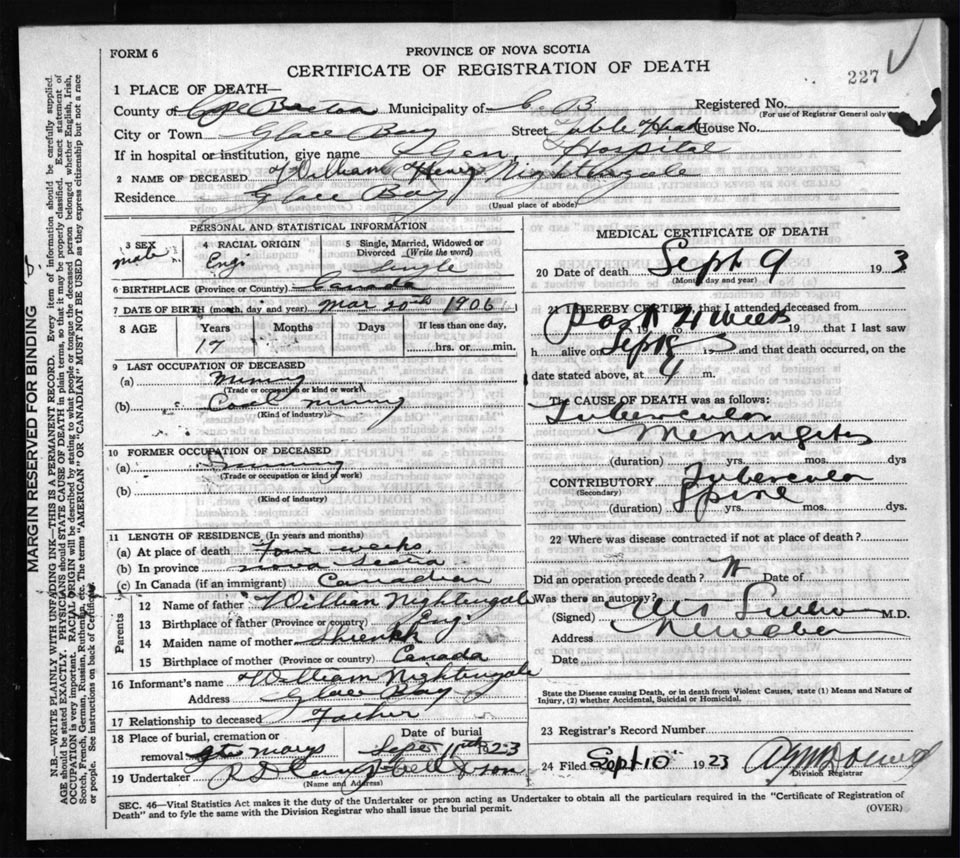 FORM 6
PROVINCE OF NOVA SCOTIA
CERTIFICATE OF REGISTRATION OF DEATH
227
1 PLACE OF DEATH—
County of Cape Breton Municipality of C. B. Registered No.
(For use of Registrar General only)
City or Town Glace Bay Street Table Head House No.
If in hospital or institution, give name Gen Hospital
2 NAME OF DECEASED William Henry Nightingale
Residence Glace Bay
(Usual place of abode)
PERSONAL AND STATISTICAL INFORMATION
3 SEX male
4 RACIAL ORIGIN Eng
5 Single, Married, Widowed or Divorced (Write the word) Single
6 BIRTHPLACE (Province or Country) Canada
7 DATE OF BIRTH (month, day and year) Mar 20th 1906
8 AGE Years Months Days If less than one day,
17 hrs. or min.
9 LAST OCCUPATION OF DECEASED
(a) Mining
(Trade or occupation or kind or work)
(b) Coal mining
(Kind of industry)
10 FORMER OCCUPATION OF DECEASED
(a) mining
(Trade or occupation or kind of work)
(b)
(Kind of industry)
11 LENGTH OF RESIDENCE (In years and months)
(a) At place of death four weeks
(b) In province nova Scotia
(c) In Canada (if an immigrant) Canadian
Parents
12 Name of father William Nightingale
13 Birthplace of father (Province or country) Eng
14 Maiden name of mother
15 Birthplace of mother (Province or country) Canada
16 Informant's name William Nightingale
Address Glace Bay
17 Relationship to deceased Father
18 Place of burial, cremation or removal Date of burial
marys Sept 11th 1923
19 Undertaker & son
(Name and Address)
MEDICAL CERTIFICATE OF DEATH
20 Date of death Sept 9 1923
(Month, day and year)
21 I HEREBY CERTIFY, that I attended deceased from
Past 4 weeks 19 to 19 that I last saw
h alive on Sept 8 19 and that death occurred, on the
date stated above, at 4 m.
The CAUSE OF DEATH was as follows:
Tubercular
Meningitis
(duration) yrs. mos. dys
CONTRIBUTORY Tubercular
(Secondary) Spine
(duration) yrs. mos. dys.
22 Where was disease contracted if not at place of death?
Did an operation precede death? Date of
Was there an autopsy?
(Signed) M.D.
Address
Date
State the Disease causing Death, or in death from Violent Causes, state (1) Means and Nature of Injury, (2) whether Accidental, Suicidal or Homicidal.
23 Registrar's Record Number
24 Filed Sept 10 1923
Division Registrar
SEC. 46—Vital Statistics Act makes it the duty of the Undertaker or person acting as Undertaker to obtain all the particulars required in the "Certificate of Registration of
Death" and to fyle the same with the Division Registrar who shall issue the burial permit.
(OVER)
MARGIN RESERVED FOR BINDING
N.B.—WRITE PLAINLY WITH UNFADING INK—THIS IS A PERMANENT RECORD. Every item of information should be carefully supplied.
AGE should be stated EXACTLY. PHYSICIANS should STATE CAUSE OF DEATH in plain terms, so that it may be properly classified. Exact statement of
OCCUPATION is very important. RACIAL ORIGIN will be described by stating to what people or tongue the deceased person belonged whether English, Irish,
Scotch, French, German, Russian, Ruthenian, etc. The terms "AMERICAN" OR "CANADIAN" MUST NOT BE USED as they express citizenship but not a race
or people. See instructions on back of Certificate.